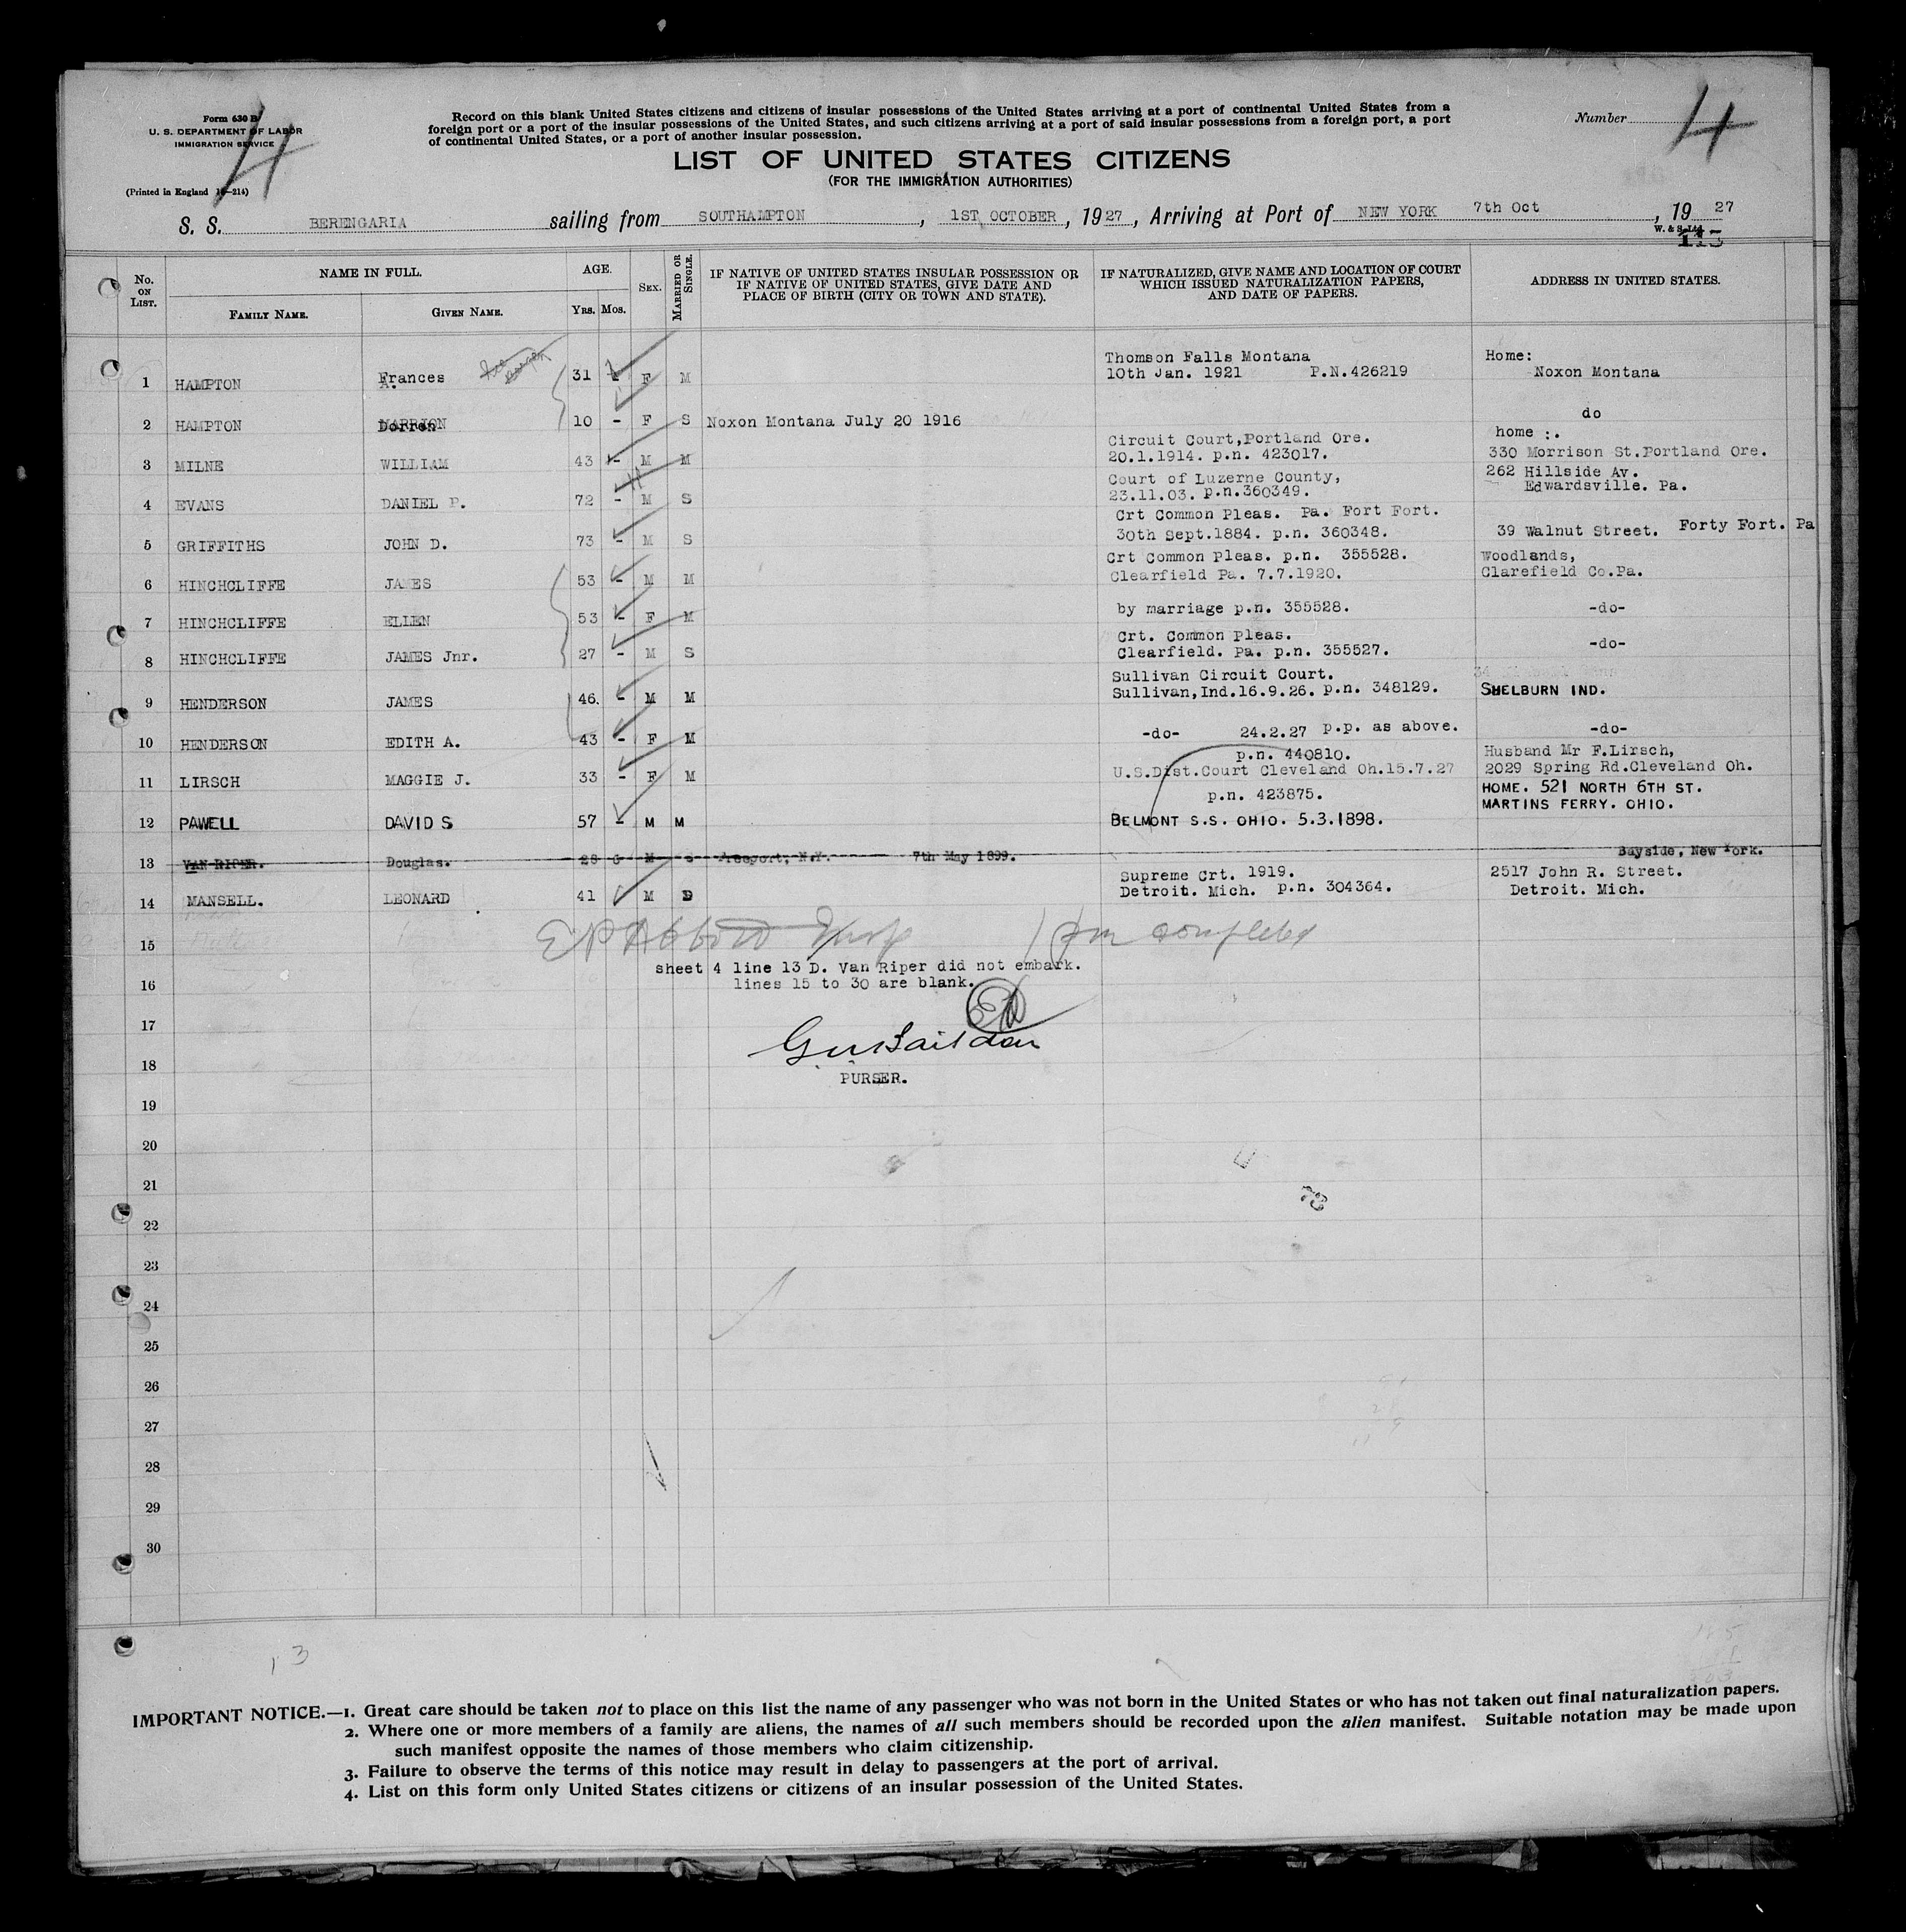 Form 630 B
U. S. DEPARTMENT OF LABOR
IMMIGRATION SERVICE
(Printed in England 14—214)
4
Record on this blank United States citizens and citizens of insular possessions of the United States arriving at a port of continental United States from a
foreign port or a port of the insular possessions of the United States, and such citizens arriving at a port of said insular possessions from a foreign port, a port
of continental United States, or a port of another insular possession.
Number 4
LIST OF UNITED STATES CITIZENS
(FOR THE IMMIGRATION AUTHORITIES)
S. S. BERENGARIA sailing from SOUTHAMPTON, 1ST OCTOBER, 1927, Arriving at Port of NEW YORK 7th Oct, 19 27
W. & S. Ltd.
113
No. ON LIST. NAME IN FULL. AGE. SEX. MARRIED OR SINGLE. IF NATIVE OF UNITED STATES INSULAR POSSESSION OR IF NATIVE OF UNITED STATES, GIVE DATE AND PLACE OF BIRTH (CITY OR TOWN AND STATE). IF NATURALIZED, GIVE NAME AND LOCATION OF COURT WHICH ISSUED NATURALIZATION PAPERS, AND DATE OF PAPERS. ADDRESS IN UNITED STATES.
FAMILY NAME. GIVEN NAME. YRS. MOS.
1 HAMPTON Frances 31 F M Thomson Falls Montana 10th Jan. 1921 P.N.426219 Home: Noxon Montana
2 HAMPTON Dorren 10 - F S Noxon Montana July 20 1916 do
3 MILNE WILLIAM 43 - M M Circuit Court,Portland Ore. 20.1.1914. p.n. 423017. home :. 330 Morrison St.Portland Ore.
4 EVANS DANIEL P. 72 - M S Court of Luzerne County, 23.11.03. p.n.360349. 262 Hillside Av. Edwardsville. Pa.
5 GRIFFITHS JOHN D. 73 - M S Crt Common Pleas. Pa. Fort Fort. 30th Sept.1884. p.n. 360348. 39 Walnut Street. Forty Fort. Pa
6 HINCHCLIFFE JAMES 53 - M M Crt Common Pleas. p.n. 355528. Clearfield Pa. 7.7.1920. Woodlands, Clarefield Co.Pa.
7 HINCHCLIFFE ELLEN 53 - F M by marriage p.n. 355528. -do-
8 HINCHCLIFFE JAMES Jnr. 27 - M S Crt. Common Pleas. Clearfield. Pa. p.n. 355527. -do-
9 HENDERSON JAMES 46. - M M Sullivan Circuit Court. Sullivan,Ind.16.9.26. p.n. 348129. SHELBURN IND.
10 HENDERSON EDITH A. 43 - F M -do- 24.2.27 p.p. as above. -do-
11 LIRSCH MAGGIE J. 33 - F M p.n. 440810. U.S.Dist.Court Cleveland Oh.15.7.27 Husband Mr F.Lirsch, 2029 Spring Rd.Cleveland Oh.
12 PAWELL DAVID S 57 - M M p.n. 423875. BELMONT S.S. OHIO. 5.3.1898. HOME. 521 NORTH 6TH ST. MARTINS FERRY. OHIO.
13 VAN RIPER. Douglas. 28 M S Freeport, N.Y. 7th May 1899. Bayside, New York.
14 MANSELL. LEONARD 41 M D Supreme Crt. 1919. Detroit. Mich. p.n. 304364. 2517 John R. Street. Detroit. Mich.
15
completed
sheet 4 line 13 D. Van Riper did not embark.
16
lines 15 to 30 are blank.
17
18
PURSER.
19
20
21
22
23
24
25
26
27
28
29
30
13
IMPORTANT NOTICE.—1. Great care should be taken not to place on this list the name of any passenger who was not born in the United States or who has not taken out final naturalization papers.
2. Where one or more members of a family are aliens, the names of all such members should be recorded upon the alien manifest. Suitable notation may be made upon
such manifest opposite the names of those members who claim citizenship.
3. Failure to observe the terms of this notice may result in delay to passengers at the port of arrival.
4. List on this form only United States citizens or citizens of an insular possession of the United States.